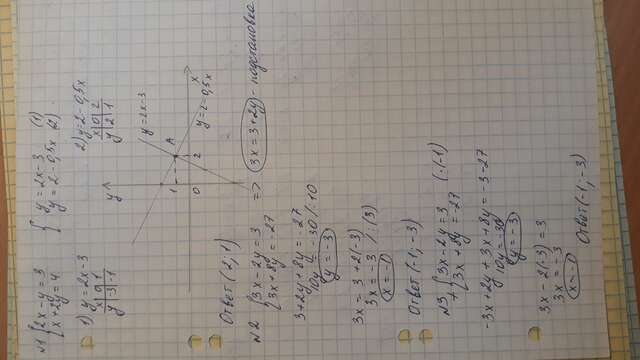 N1 { 2x - y = 3
x + 2y = 4
{ y = 2x - 3 (1)
y = 2 - 0,5x (2)
1) y = 2x - 3
x | 0 | 1
y | -3 | -1
2) y = 2 - 0,5x
x | 0 | 2
y | 2 | 1
y
y = 2x - 3
A
1
0
2
x
y = 2 - 0,5x
Ответ (2; 1)
N2 { 3x - 2y = 3
3x + 8y = -27
=> 3x = 3 + 2y - подстановка
3 + 2y + 8y = -27
10y = -30 /:10
y = -3
3x = 3 + 2(-3)
3x = -3 /:(3)
x = -1
Ответ (-1; -3)
N3 { 3x - 2y = 3 (·(-1)
+ 3x + 8y = -27
-3x + 2y + 3x + 8y = -3 - 27
10y = -30
y = -3
3x - 2(-3) = 3
3x = -3
x = -1
Ответ (-1; -3)